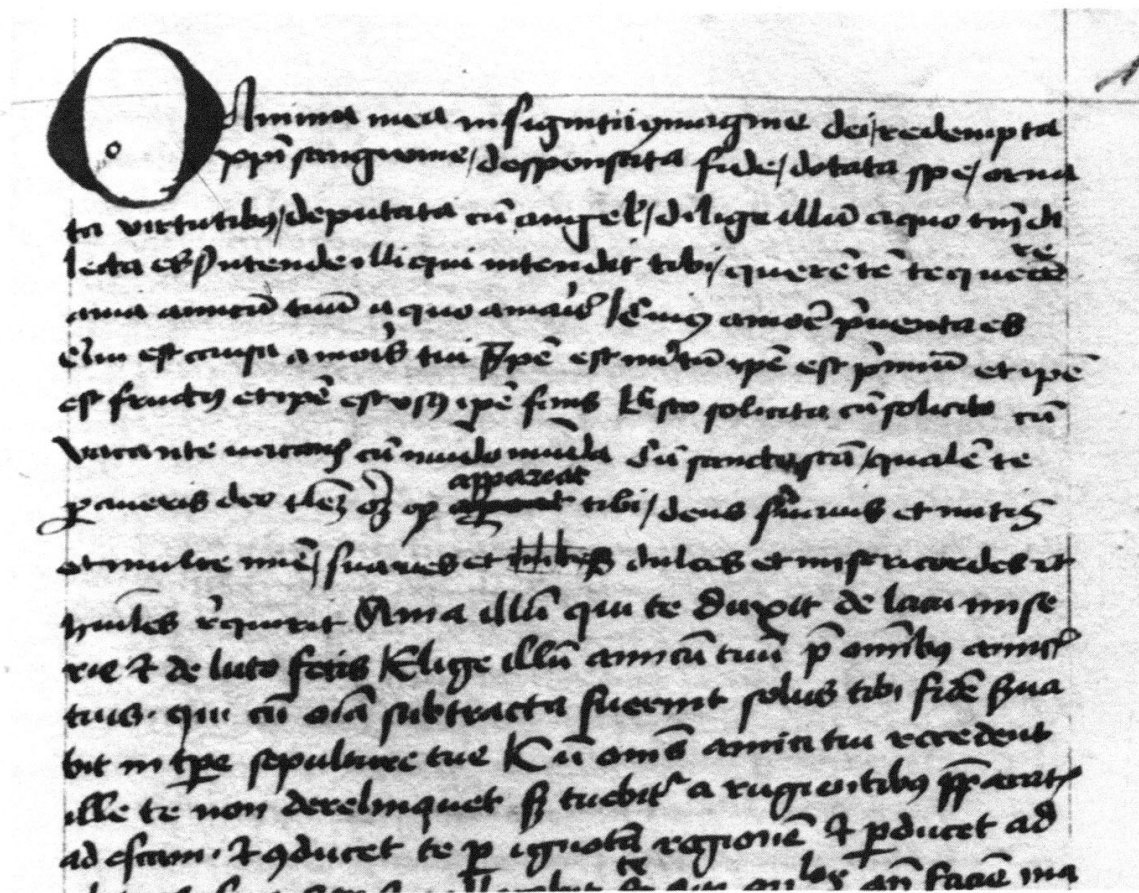 O Anima mea insignita ymagine dei / redempta
xpi sanguine / desponsata fide / dotata spe / orna
ta virtutibus / deputata cu angel / dilige illu a quo tm di
lecta es Intende illi qui intendit tibi / querete te quere
ama amicu tuu a quo amaris cuius amore pventa es
est causa amoris tui Ipe est meritu ipe est pmiu et ipe
est fructus et ipe est usus ipe finis Esto solicita cu solicito cu
vacante vacans cu mudo muda cu sancto sca / quale te
paveris deo tale appareat tibi / deus suavis et mitis
et multe mie / suaves et dulces et misericordes et
humiles requirit Ama illu qui te duxit de lacu mise
rie et de luto fecis Elige illu amicu tuu p omibus amicis
tuis . qui cu oia subtracta fuerint solus tibi fide sua
bit in tpe sepulture tue Cu oms amici tui recedent
ille te non derelinquet sz tuebit a rugientibus pparatis
ad escam . et conducet te p ignota regione et pducet ad